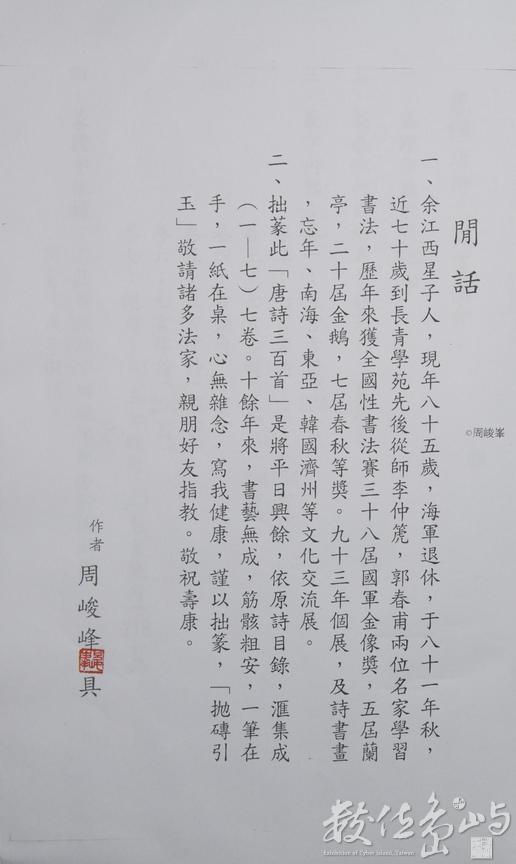 閒話
一、余江西星子人，現年八十五歲，海軍退休，于八十一年秋，
近七十歲到長青學苑先後從師李仲篪，郭春甫兩位名家學習
書法，歷年來獲全國性書法賽三十八屆國軍金像獎，五屆蘭
亭，二十屆金鵝，七屆春秋等獎。九十三年個展，及詩書畫
，忘年、南海、東亞、韓國濟州等文化交流展。
二、拙篆此「唐詩三百首」是將平日興餘，依原詩目錄，滙集成
（一—七）七卷。十餘年來，書藝無成，筋骸粗安，一筆在
手，一紙在桌，心無雜念，寫我健康，謹以拙篆，「拋磚引
玉」敬請諸多法家，親朋好友指教。敬祝壽康。
作者 周峻峰 具
©周峻峯
數位島嶼
Exhibition of Cyber Island, Taiwan